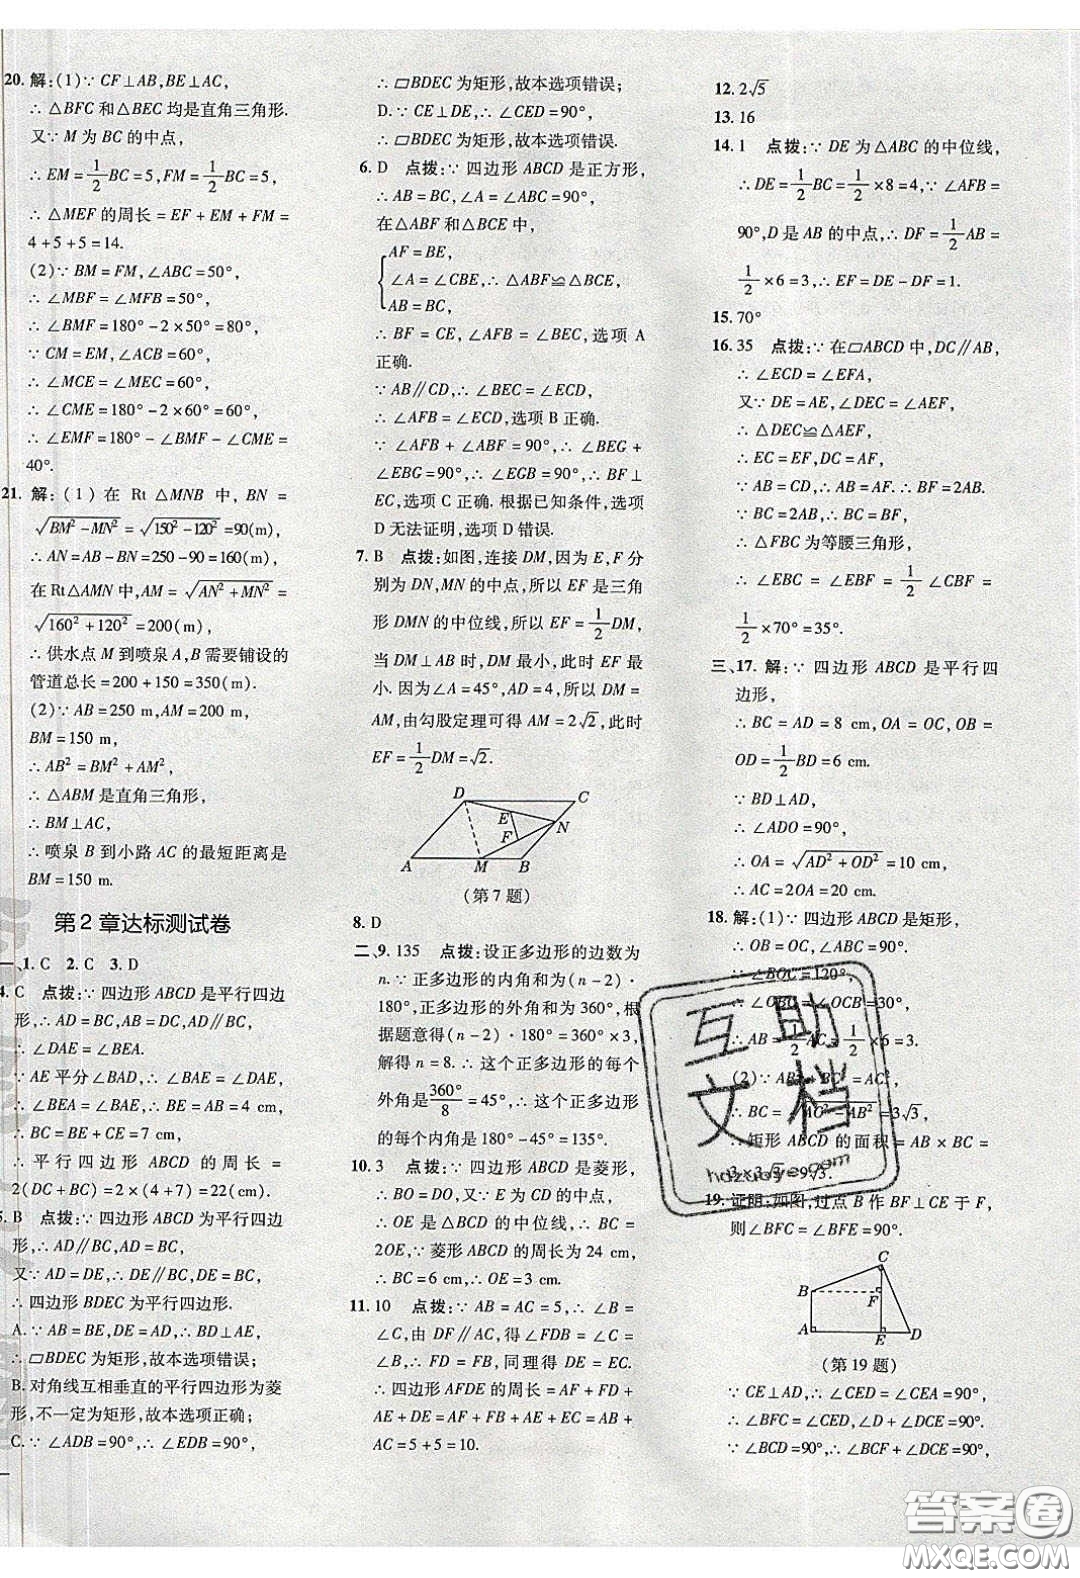 20. 解:(1)∵ CF⊥AB,BE⊥AC,
∴ △BFC 和△BEC 均是直角三角形.
又∵ M 为 BC 的中点,
∴ EM = 1/2 BC = 5,FM = 1/2 BC = 5,
∴ △MEF 的周长 = EF + EM + FM =
4 + 5 + 5 = 14.
(2)∵ BM = FM,∠ABC = 50°,
∴ ∠MBF = ∠MFB = 50°,
∴ ∠BMF = 180° - 2×50° = 80°,
∵ CM = EM,∠ACB = 60°,
∴ ∠MCE = ∠MEC = 60°,
∴ ∠CME = 180° - 2×60° = 60°,
∴ ∠EMF = 180° - ∠BMF - ∠CME =
40°.
21. 解:(1) 在 Rt △MNB 中, BN =
√(BM²-MN²) = √(150²-120²) = 90(m),
∴ AN = AB - BN = 250 - 90 = 160(m),
在 Rt△AMN 中,AM = √(AN²+MN²) =
√(160²+120²) = 200(m),
∴ 供水点 M 到喷泉 A,B 需要铺设的
管道总长 = 200 + 150 = 350(m).
(2)∵ AB = 250 m,AM = 200 m,
BM = 150 m,
∴ AB² = BM² + AM²,
∴ △ABM 是直角三角形,
∴ BM⊥AC,
∴ 喷泉 B 到小路 AC 的最短距离是
BM = 150 m.
第 2 章达标测试卷
一、1. C 2. C 3. D
4. C 点拨:∵ 四边形 ABCD 是平行四边
形,∴ AD = BC,AB = DC,AD∥BC,
∴ ∠DAE = ∠BEA.
∵ AE 平分∠BAD,∴ ∠BAE = ∠DAE,
∴ ∠BEA = ∠BAE,∴ BE = AB = 4 cm,
∴ BC = BE + CE = 7 cm,
∴ 平行四边形 ABCD 的周长 =
2(DC + BC) = 2(4 + 7) = 22(cm).
5. B 点拨:∵ 四边形 ABCD 为平行四边
形,∴ AD∥BC,AD = BC.
又∵ AD = DE,∴ DE∥BC,DE = BC,
∴ 四边形 BDEC 为平行四边形.
A. ∵ AB = BE,DE = AD,∴ BD⊥AE,
∴ ▱BDEC 为矩形,故本选项错误;
B. 对角线互相垂直的平行四边形为菱
形,不一定为矩形,故本选项正确;
C. ∵ ∠ADB = 90°,∴ ∠EDB = 90°,
∴ ▱BDEC 为矩形,故本选项错误;
D. ∵ CE⊥DE,∴ ∠CED = 90°,
∴ ▱BDEC 为矩形,故本选项错误.
6. D 点拨:∵ 四边形 ABCD 是正方形,
∴ AB = BC,∠A = ∠CBE = 90°,
在△ABF 和△BCE 中,
AF = BE,
∠A = ∠CBE,∴ △ABF≌△BCE,
AB = BC,
∴ BF = CE,∠AFB = ∠BEC,选项 A
正确.
∵ AB∥CD,∴ ∠BEC = ∠ECD,
∴ ∠AFB = ∠ECD,选项 B 正确.
∵ ∠AFB + ∠ABF = 90°,∴ ∠BEG +
∠EBG = 90°,∴ ∠EGB = 90°,∴ BF⊥
EC,选项 C 正确. 根据已知条件,选项
D 无法证明,选项 D 错误.
7. B 点拨:如图,连接 DM,因为 E,F 分
别为 DN,MN 的中点,所以 EF 是三角
形 DMN 的中位线,所以 EF = 1/2 DM,
当 DM⊥AB 时,DM 最小,此时 EF 最
小. 因为∠A = 45°,AD = 4,所以 DM =
AM,由勾股定理可得 AM = 2√2,此时
EF = 1/2 DM = √2.
D C
E
N
F
A M B
(第 7 题)
8. D
二、9. 135 点拨:设正多边形的边数为
n. ∵ 正多边形的内角和为(n - 2)·
180°,正多边形的外角和为 360°,根
据题意得(n - 2)·180° = 360°×3,
解得 n = 8. ∴ 这个正多边形的每个
外角是 360°/8 = 45°,∴ 这个正多边形
的每个内角是 180° - 45° = 135°.
10. 3 点拨:∵ 四边形 ABCD 是菱形,
∴ BO = DO,又∵ E 是 CD 的中点,
∴ OE 是△DBC 的中位线,∴ BC =
2OE,∵ 菱形 ABCD 的周长为 24 cm,
∴ BC = 6 cm,∴ OE = 3 cm.
11. 10 点拨:∵ AB = AC = 5,∴ ∠B =
∠C,由 DF∥AC,得∠FDB = ∠C =
∠B,∴ FD = FB,同理得 DE = EC.
∴ 四边形 AFDE 的周长 = AF + FD +
AE + DE = AF + FB + AE + EC = AB +
AC = 5 + 5 = 10.
12. 2√5
13. 16
14. 1 点拨:∵ DE 为△ABC 的中位线,
∴ DE = 1/2 BC = 1/2 ×8 = 4,∵ ∠AFB =
90°,D 是 AB 的中点,∴ DF = 1/2 AB =
1/2 ×6 = 3,∴ EF = DE - DF = 1.
15. 70°
16. 35 点拨:∵ 在▱ABCD 中,DC∥AB,
∴ ∠ECD = ∠EFA,
又∵ DE = AE,∠DEC = ∠AEF,
∴ △DEC≌△AEF,
∴ EC = EF,DC = AF.
∵ AB = CD,∴ AB = AF. ∴ BF = 2AB.
∵ BC = 2AB,∴ BF = BC,
∴ △FBC 为等腰三角形,
∴ ∠EBC = ∠EBF = 1/2 ∠CBF =
1/2 ×70° = 35°.
三、17. 解:∵ 四边形 ABCD 是平行四
边形,
∴ BC = AD = 8 cm,OA = OC,OB =
OD = 1/2 BD = 6 cm.
∵ BD⊥AD,
∴ ∠ADO = 90°,
∴ OA = √(AD²+OD²) = 10 cm,
∴ AC = 2OA = 20 cm.
18. 解:(1)∵ 四边形 ABCD 是矩形,
∴ OB = OC,∠ABC = 90°.
∵ ∠BOC = 120°,
∴ ∠OBC = ∠OCB = 30°,
∴ AB = 1/2 AC = 1/2 ×6 = 3.
(2)∵ AB² + BC² = AC²,
∴ BC = √(AC²-AB²) = 3√3,
∴ 矩形 ABCD 的面积 = AB × BC =
3×3√3 = 9√3.
19. 证明:如图,过点 B 作 BF⊥CE 于 F,
则∠BFC = ∠BFE = 90°.
C
B F
A E D
(第 19 题)
∵ CE⊥AD,∴ ∠CED = ∠CEA = 90°,
∴ ∠BFC = ∠CED,∠D + ∠DCE = 90°,
∵ ∠BCD = 90°,∴ ∠BCF + ∠DCE = 90°,
互助
文档
hdzuoye.com
答案卷
MXQE.COM